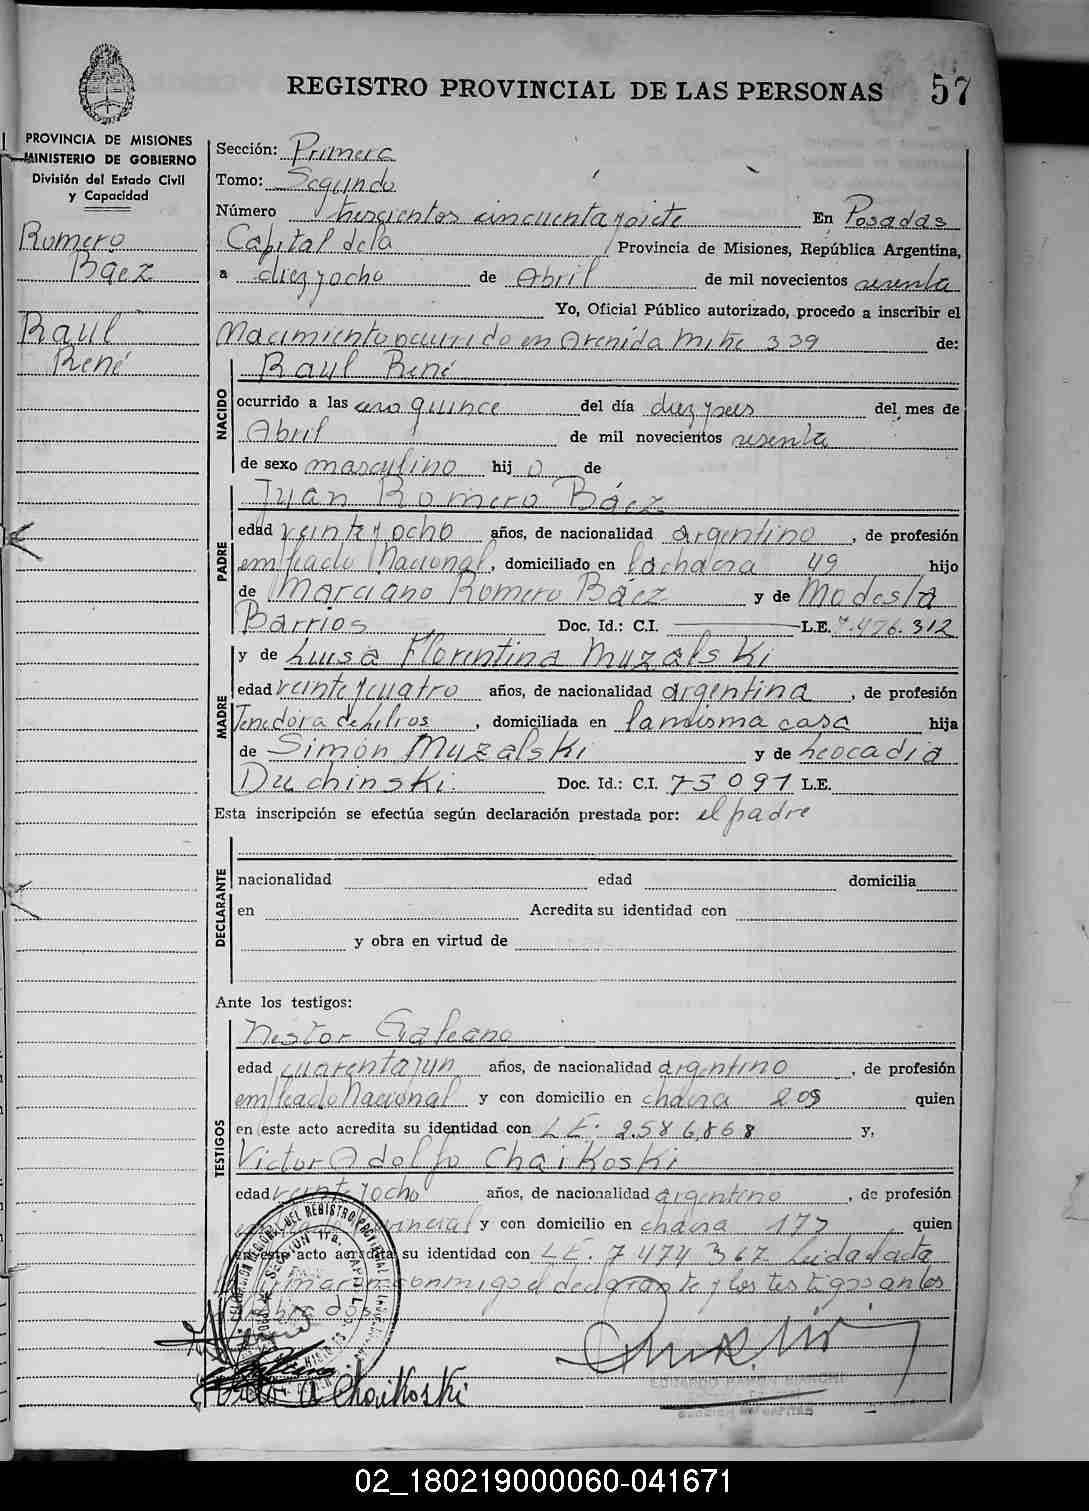 REGISTRO PROVINCIAL DE LAS PERSONAS 57
PROVINCIA DE MISIONES
MINISTERIO DE GOBIERNO
División del Estado Civil
y Capacidad
Romero
Báez
Raul
René
Sección: Primera
Tomo: Segundo
Número trescientos cincuenta y siete En Posadas
Capital de la Provincia de Misiones, República Argentina,
a diez y ocho de Abril de mil novecientos sesenta
Yo, Oficial Público autorizado, procedo a inscribir el
Nacimiento ocurrido en Avenida Mitre 339 de:
NACIDO
Raul René
ocurrido a las una quince del día diez y seis del mes de
Abril de mil novecientos sesenta
de sexo masculino hij o de
PADRE
Juan Romero Báez
edad veinte y ocho años, de nacionalidad argentino, de profesión
empleado Nacional, domiciliado en la chacra 49 hijo
de Marciano Romero Báez y de Modesta
Barrios Doc. Id.: C.I. L.E. 7.476.312
MADRE
y de Luisa Florentina Muzalski
edad veinte y cuatro años, de nacionalidad argentina, de profesión
Tenedora de Libros, domiciliada en la misma casa hija
de Simón Muzalski y de Leocadia
Duchinski. Doc. Id.: C.I. 75097 L.E.
Esta inscripción se efectúa según declaración prestada por: el padre
DECLARANTE
nacionalidad edad domicilia
en Acredita su identidad con
y obra en virtud de
Ante los testigos:
TESTIGOS
Nestor Galeano
edad cuarenta y un años, de nacionalidad argentino, de profesión
empleado Nacional y con domicilio en chacra 209 quien
en este acto acredita su identidad con L.E. 2.586.868 y,
Victor Adolfo Chaikoski
edad veinte y ocho años, de nacionalidad argentino, de profesión
provincial y con domicilio en chacra 177 quien
en este acto acredita su identidad con L.E. 7 474 367 Leida el acta
firman conmigo el declarante y los testigos antes
A Chaikoski
02_180219000060-041671